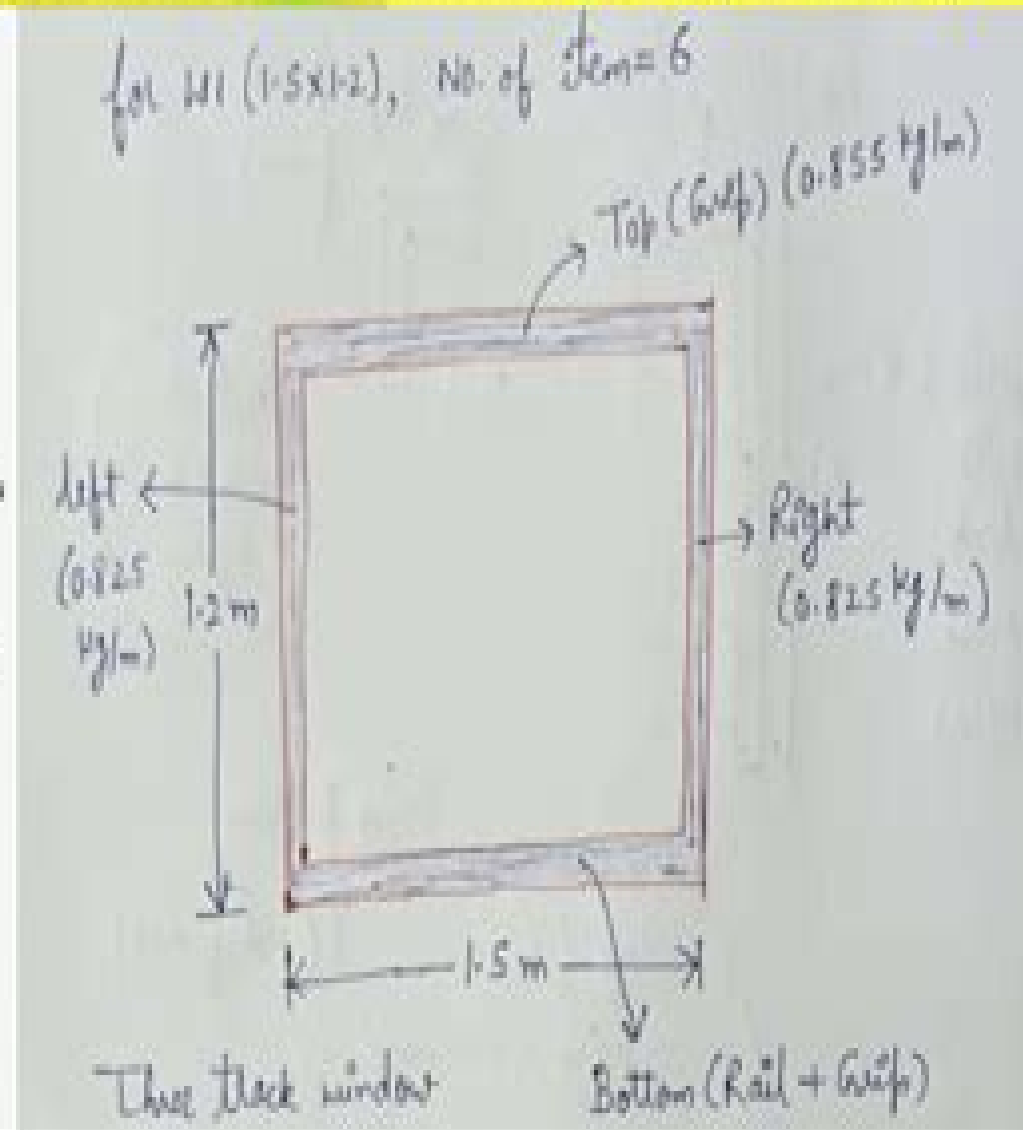 for W1 (1.5x1.2), No. of item = 6
Top (Grip) (0.855 kg/m)
left
(0.825
kg/m)
1.2 m
Right
(0.825 kg/m)
1.5 m
Three track window
Bottom (Rail + Grip)